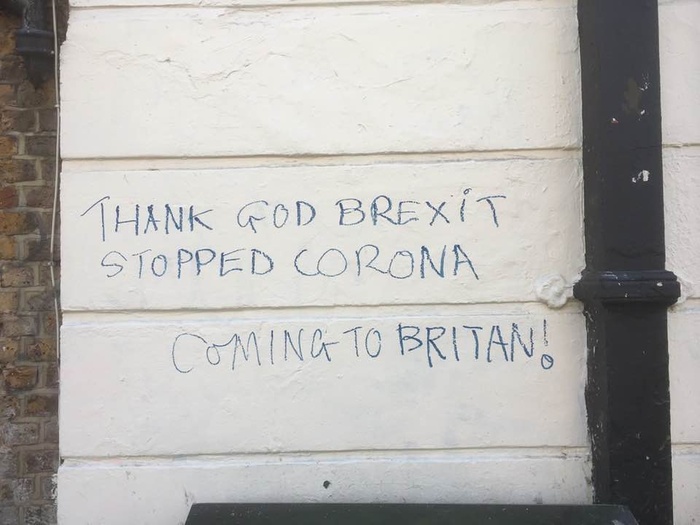 THANK GOD BREXiT
STOPPED CORONA
COMING TO BRITAN!